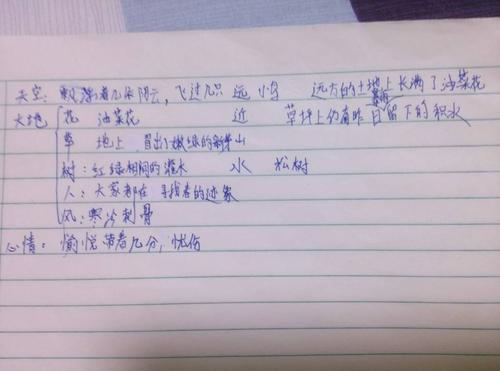 天空：飘浮着几朵阴云，飞过几只 远 小鸟 远方的土地上长满了油菜花
大地 花 油菜花 近 草坪上仍有昨日留下的积水
草 地上 冒出了嫩绿的新芽 山
树：红绿相间的灌木 水 松树
人：大家都在寻找春的迹象
风：寒冷刺骨
心情：愉悦带着几分，忧伤